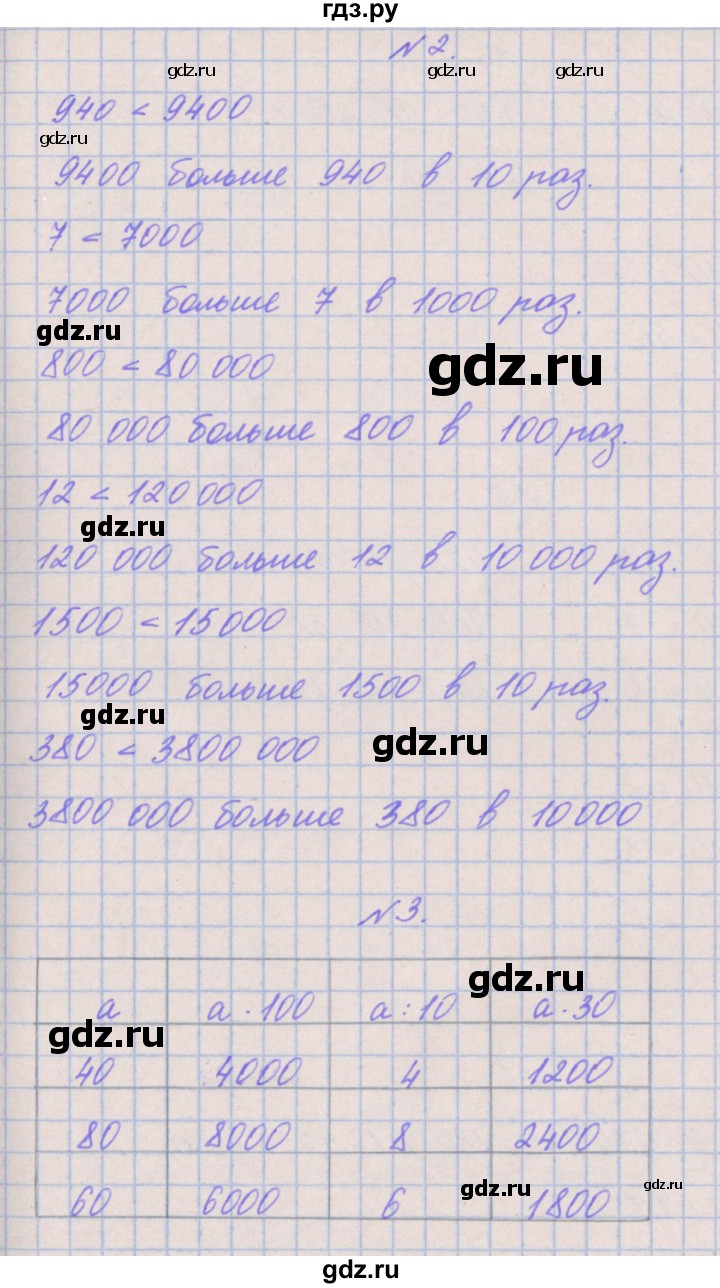 гдз.ру
№2.
gdz.ru gdz.ru gdz.ru
940 < 9400
gdz.ru
9400 больше 940 в 10 раз.
7 < 7000
7000 больше 7 в 1000 раз.
gdz.ru
800 < 80 000
gdz.ru
80 000 больше 800 в 100 раз.
12 < 120 000
gdz.ru
120 000 больше 12 в 10 000 раз.
1500 < 15 000
15000 больше 1500 в 10 раз.
gdz.ru
380 < 3800 000
gdz.ru
3800 000 больше 380 в 10000
№3.
gdz.ru
a a · 100 a : 10 a · 30
gdz.ru
40 4000 4 1200
80 8000 8 2400
gdz.ru gdz.ru
60 6000 6 1800
gdz.ru